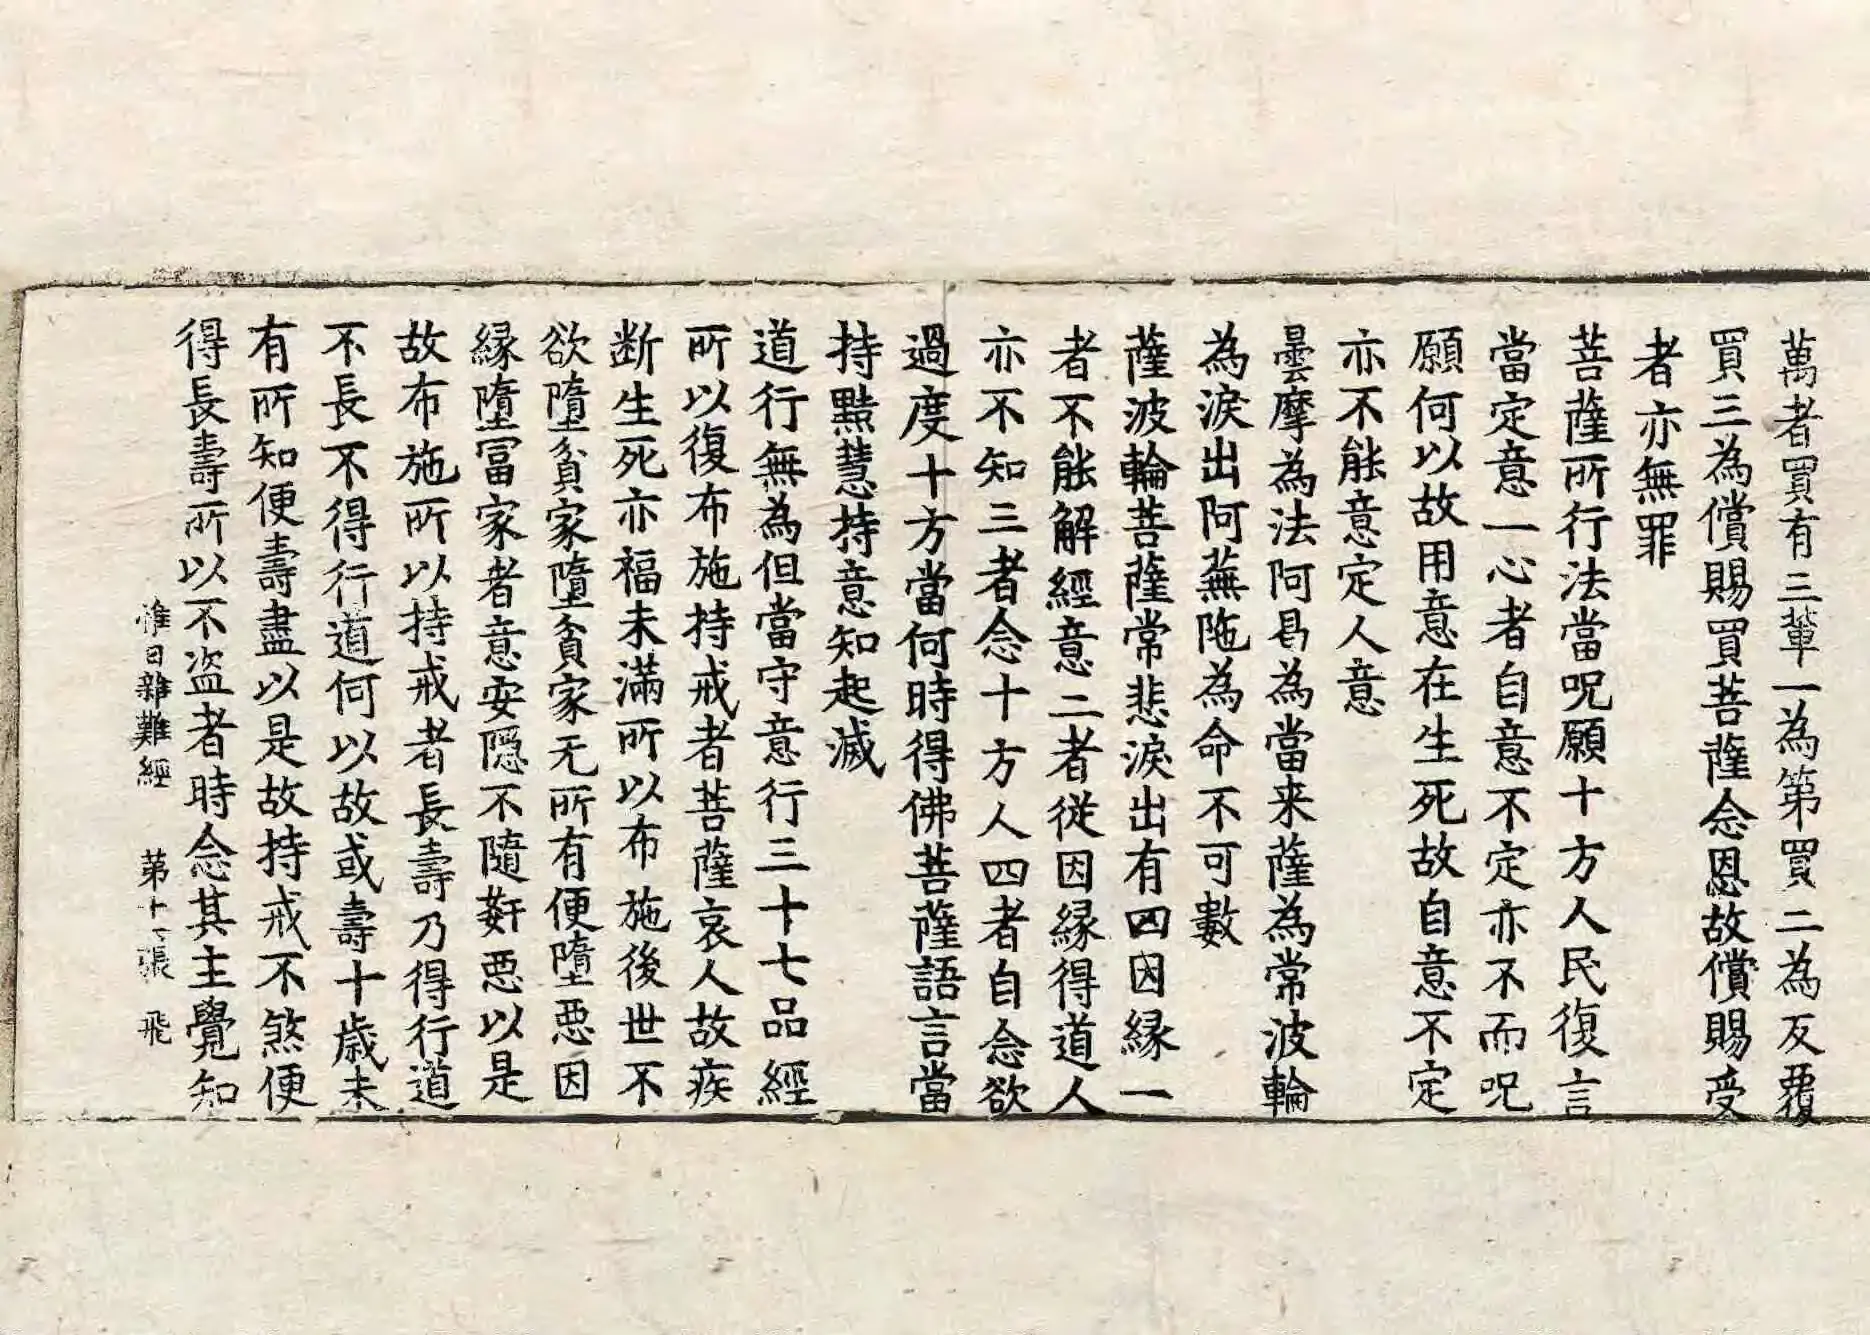 萬者買有三輩一為第買二為反覆
買三為償賜買菩薩念恩故償賜受
者亦無罪
菩薩所行法當呪願十方人民復言
當定意一心者自意不定亦不而呪
願何以故用意在生死故自意不定
亦不能意定人意
曇摩為法阿曷為當来薩為常波輪
為淚出阿蕪陁為命不可數
薩波輪菩薩常悲淚出有四因緣一
者不能解經意二者從因緣得道人
亦不知三者念十方人四者自念欲
過度十方當何時得佛菩薩語言當
持黠慧持意知起滅
道行無為但當守意行三十七品經
所以復布施持戒者菩薩哀人故疾
断生死亦福未滿所以布施後世不
欲墮貧家墮貧家无所有便墮惡因
緣墮富家者意安隱不隨姧惡以是
故布施所以持戒者長壽乃得行道
不長不得行道何以故或壽十歲未
有所知便壽盡以是故持戒不煞便
得長壽所以不盗者時念其主覺知
惟日雜難經 第十張 飛